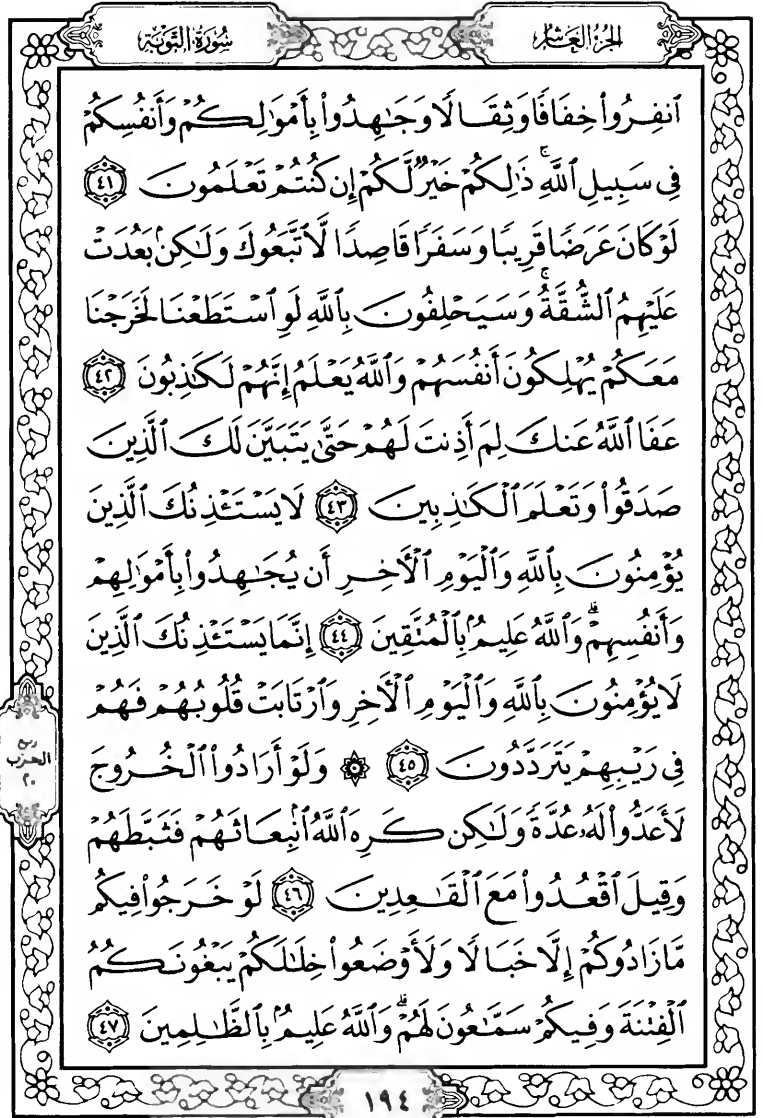 الجزء العاشر
سورة التوبة
ٱنفِرُوا۟ خِفَافًا وَثِقَالًا وَجَٰهِدُوا۟ بِأَمْوَٰلِكُمْ وَأَنفُسِكُمْ
فِى سَبِيلِ ٱللَّهِ ۚ ذَٰلِكُمْ خَيْرٌ لَّكُمْ إِن كُنتُمْ تَعْلَمُونَ ٤١
لَوْ كَانَ عَرَضًا قَرِيبًا وَسَفَرًا قَاصِدًا لَّٱتَّبَعُوكَ وَلَٰكِنۢ بَعُدَتْ
عَلَيْهِمُ ٱلشُّقَّةُ ۚ وَسَيَحْلِفُونَ بِٱللَّهِ لَوِ ٱسْتَطَعْنَا لَخَرَجْنَا
مَعَكُمْ يُهْلِكُونَ أَنفُسَهُمْ وَٱللَّهُ يَعْلَمُ إِنَّهُمْ لَكَٰذِبُونَ ٤٢
عَفَا ٱللَّهُ عَنكَ لِمَ أَذِنتَ لَهُمْ حَتَّىٰ يَتَبَيَّنَ لَكَ ٱلَّذِينَ
صَدَقُوا۟ وَتَعْلَمَ ٱلْكَٰذِبِينَ ٤٣ لَا يَسْتَـْٔذِنُكَ ٱلَّذِينَ
يُؤْمِنُونَ بِٱللَّهِ وَٱلْيَوْمِ ٱلْـَٔاخِرِ أَن يُجَٰهِدُوا۟ بِأَمْوَٰلِهِمْ
وَأَنفُسِهِمْ ۗ وَٱللَّهُ عَلِيمٌۢ بِٱلْمُتَّقِينَ ٤٤ إِنَّمَا يَسْتَـْٔذِنُكَ ٱلَّذِينَ
لَا يُؤْمِنُونَ بِٱللَّهِ وَٱلْيَوْمِ ٱلْـَٔاخِرِ وَٱرْتَابَتْ قُلُوبُهُمْ فَهُمْ
فِى رَيْبِهِمْ يَتَرَدَّدُونَ ٤٥ ۞ وَلَوْ أَرَادُوا۟ ٱلْخُرُوجَ
لَأَعَدُّوا۟ لَهُۥ عُدَّةً وَلَٰكِن كَرِهَ ٱللَّهُ ٱنۢبِعَاثَهُمْ فَثَبَّطَهُمْ
وَقِيلَ ٱقْعُدُوا۟ مَعَ ٱلْقَٰعِدِينَ ٤٦ لَوْ خَرَجُوا۟ فِيكُم
مَّا زَادُوكُمْ إِلَّا خَبَالًا وَلَأَوْضَعُوا۟ خِلَٰلَكُمْ يَبْغُونَكُمُ
ٱلْفِتْنَةَ وَفِيكُمْ سَمَّٰعُونَ لَهُمْ ۗ وَٱللَّهُ عَلِيمٌۢ بِٱلظَّٰلِمِينَ ٤٧
ربع
الحزب
٢٠
١٩٤